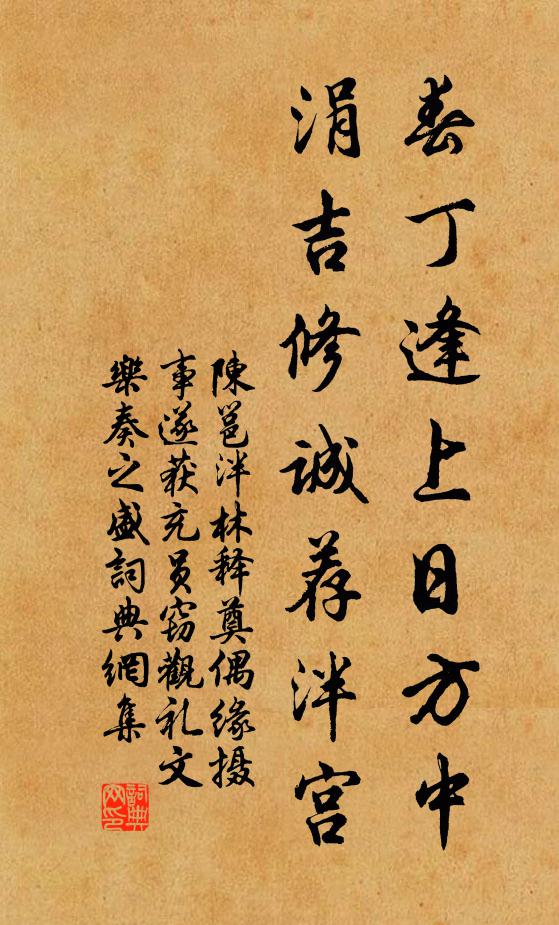 春丁逢上日方中
涓吉修诚荐泮宫
陳邕泮林释奠偶缘摄
事遂获充員窃觀礼文
樂奏之盛詞典網集
詞典网印